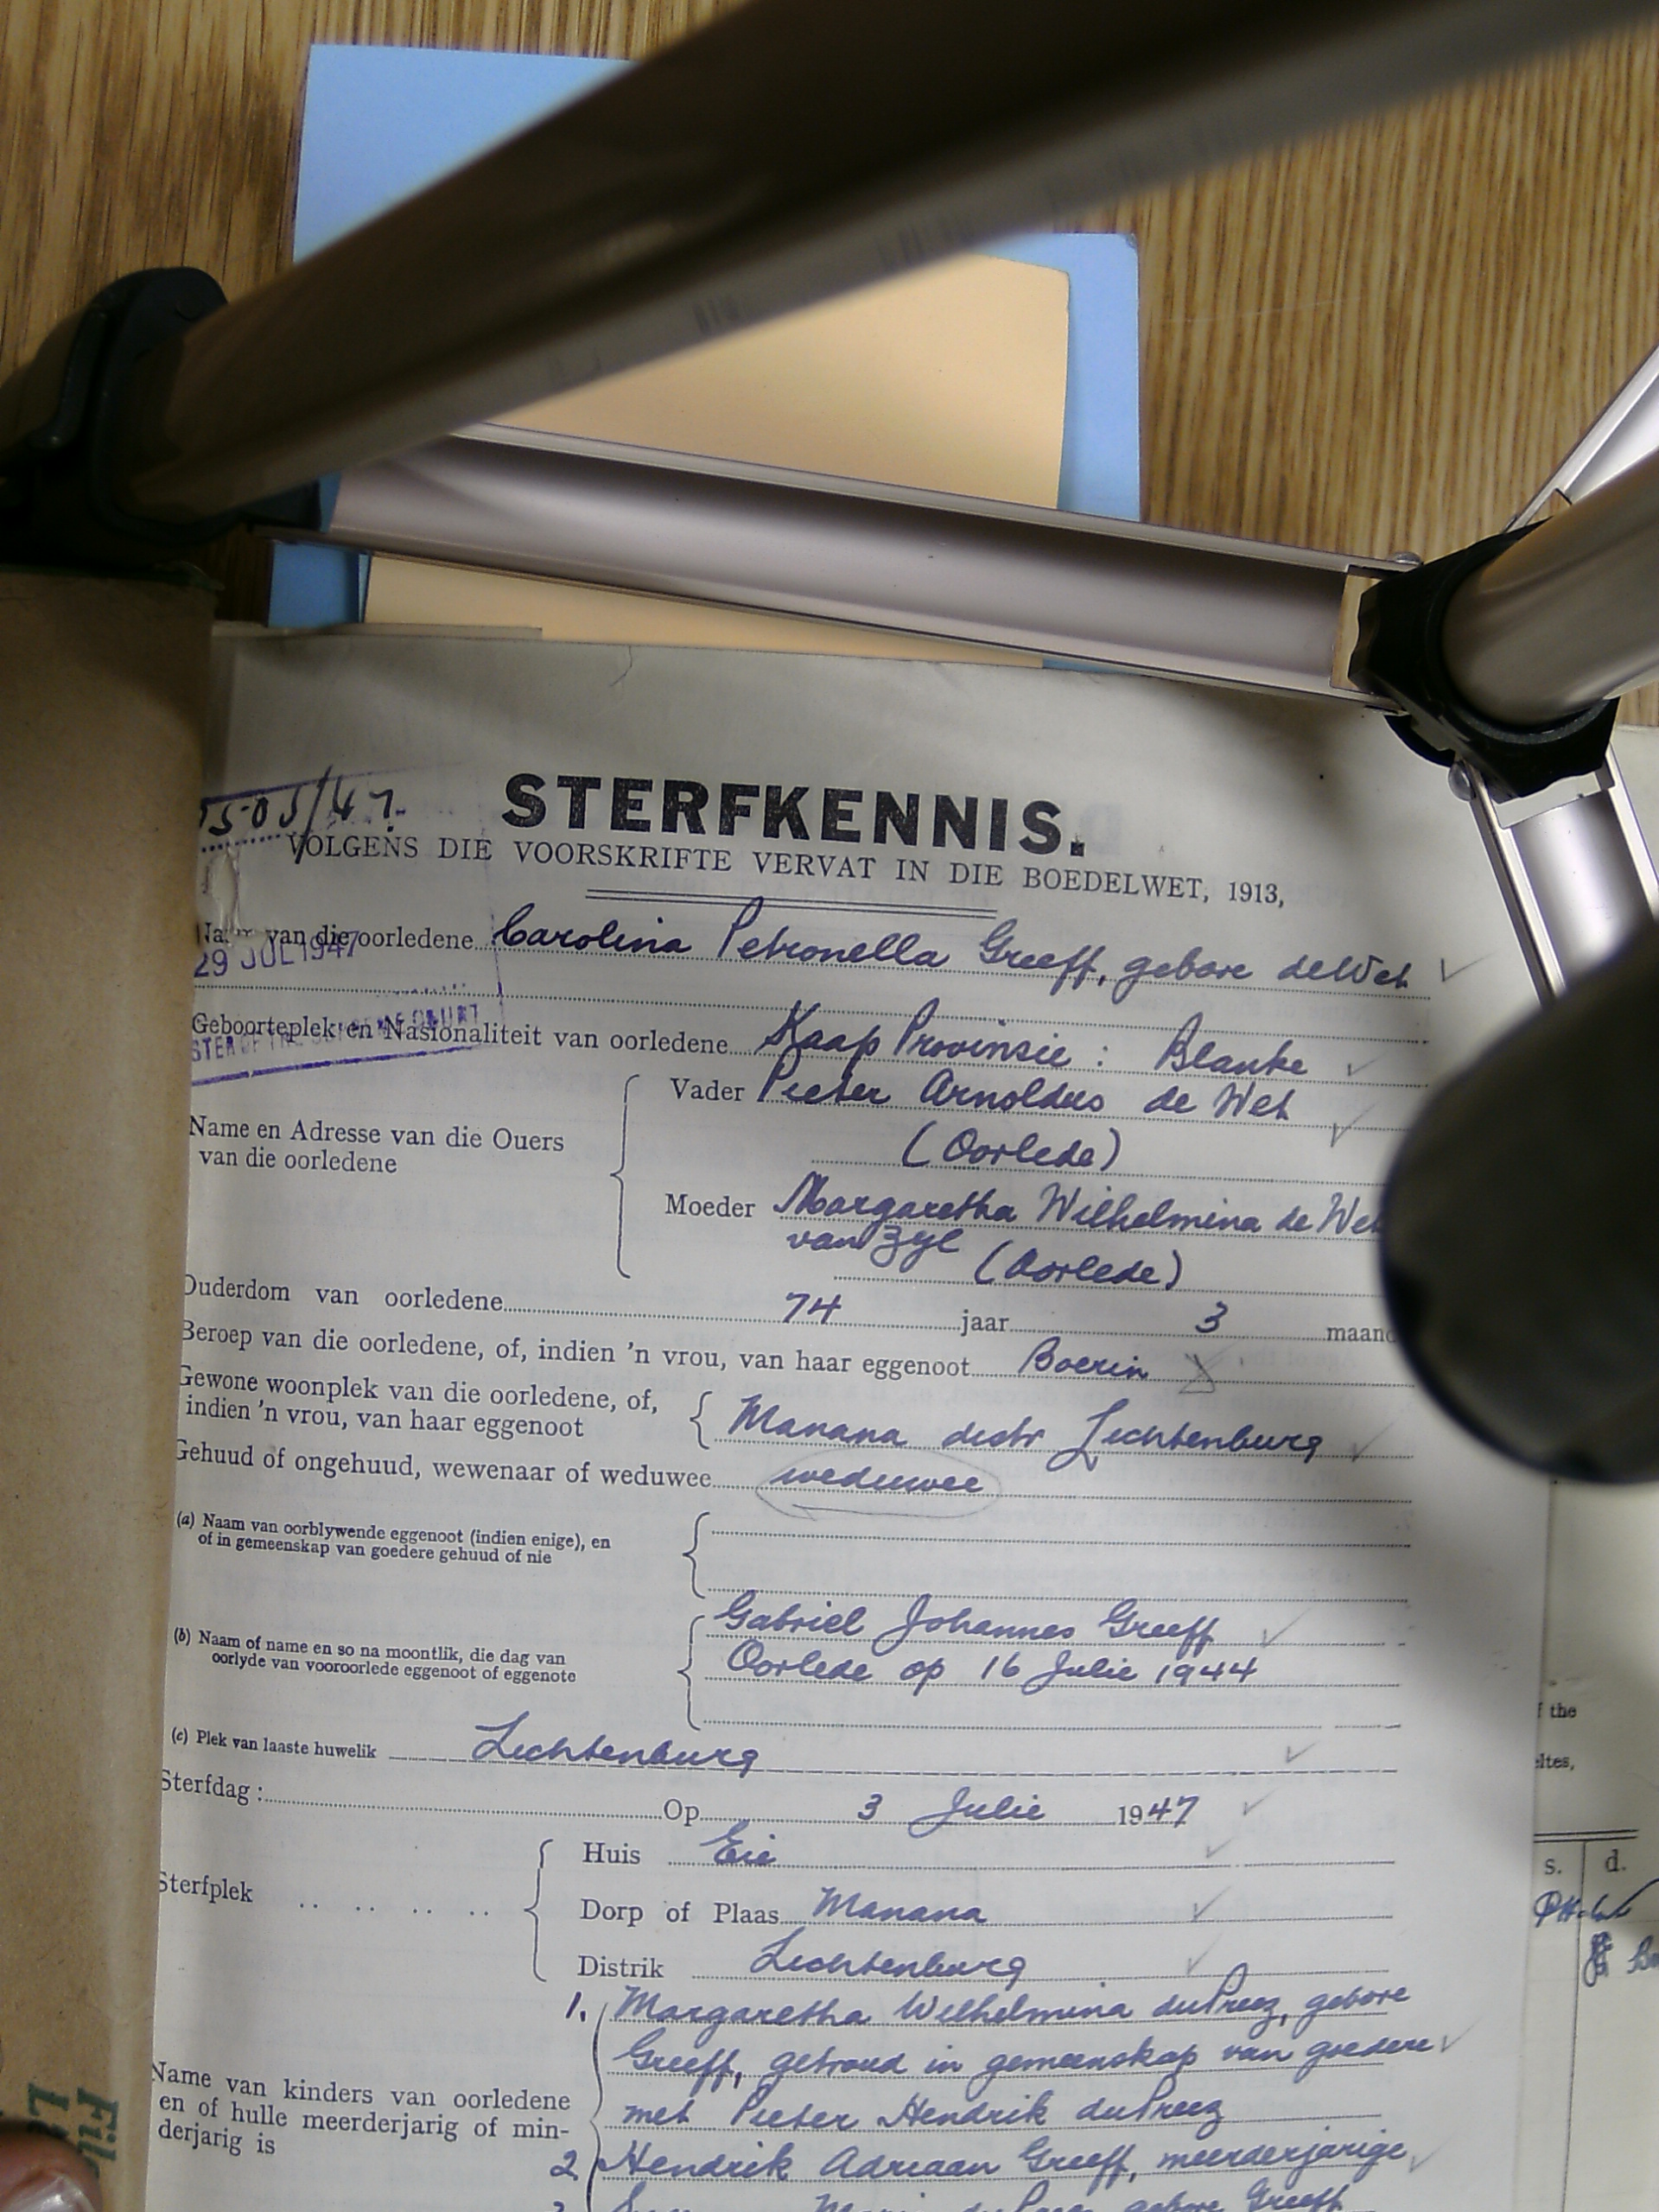 5505/47.
STERFKENNIS.
VOLGENS DIE VOORSKRIFTE VERVAT IN DIE BOEDELWET, 1913,
van die oorledene Carolina Petronella Greeff, gebore de Wet
29 JUL 1947
Geboorteplek en Nasionaliteit van oorledene Kaap Provinsie : Blanke
Name en Adresse van die Ouers
van die oorledene
Vader Pieter Arnoldus de Wet
(Oorlede)
Moeder Margaretha Wilhelmina de Wet
van Zyl (Oorlede)
Ouderdom van oorledene 74 jaar 3 maand
Beroep van die oorledene, of, indien 'n vrou, van haar eggenoot Boerin
Gewone woonplek van die oorledene, of,
indien 'n vrou, van haar eggenoot
Manana distr Lichtenburg
Gehuud of ongehuud, wewenaar of weduwee weduwee
(a) Naam van oorblywende eggenoot (indien enige), en
of in gemeenskap van goedere gehuud of nie
(b) Naam of name en so na moontlik, die dag van
oorlyde van vooroorlede eggenoot of eggenote
Gabriel Johannes Greeff
Oorlede op 16 Julie 1944
(c) Plek van laaste huwelik Lichtenburg
Sterfdag : Op 3 Julie 1947
Sterfplek
Huis Eie
Dorp of Plaas Manana
Distrik Lichtenburg
Name van kinders van oorledene
en of hulle meerderjarig of min-
derjarig is
1. Margaretha Wilhelmina du Preez, gebore
Greeff, getroud in gemeenskap van goedere
met Pieter Hendrik du Preez
2. Hendrik Adriaan Greeff, meerderjarige
gebore Greeff
the
s. d.